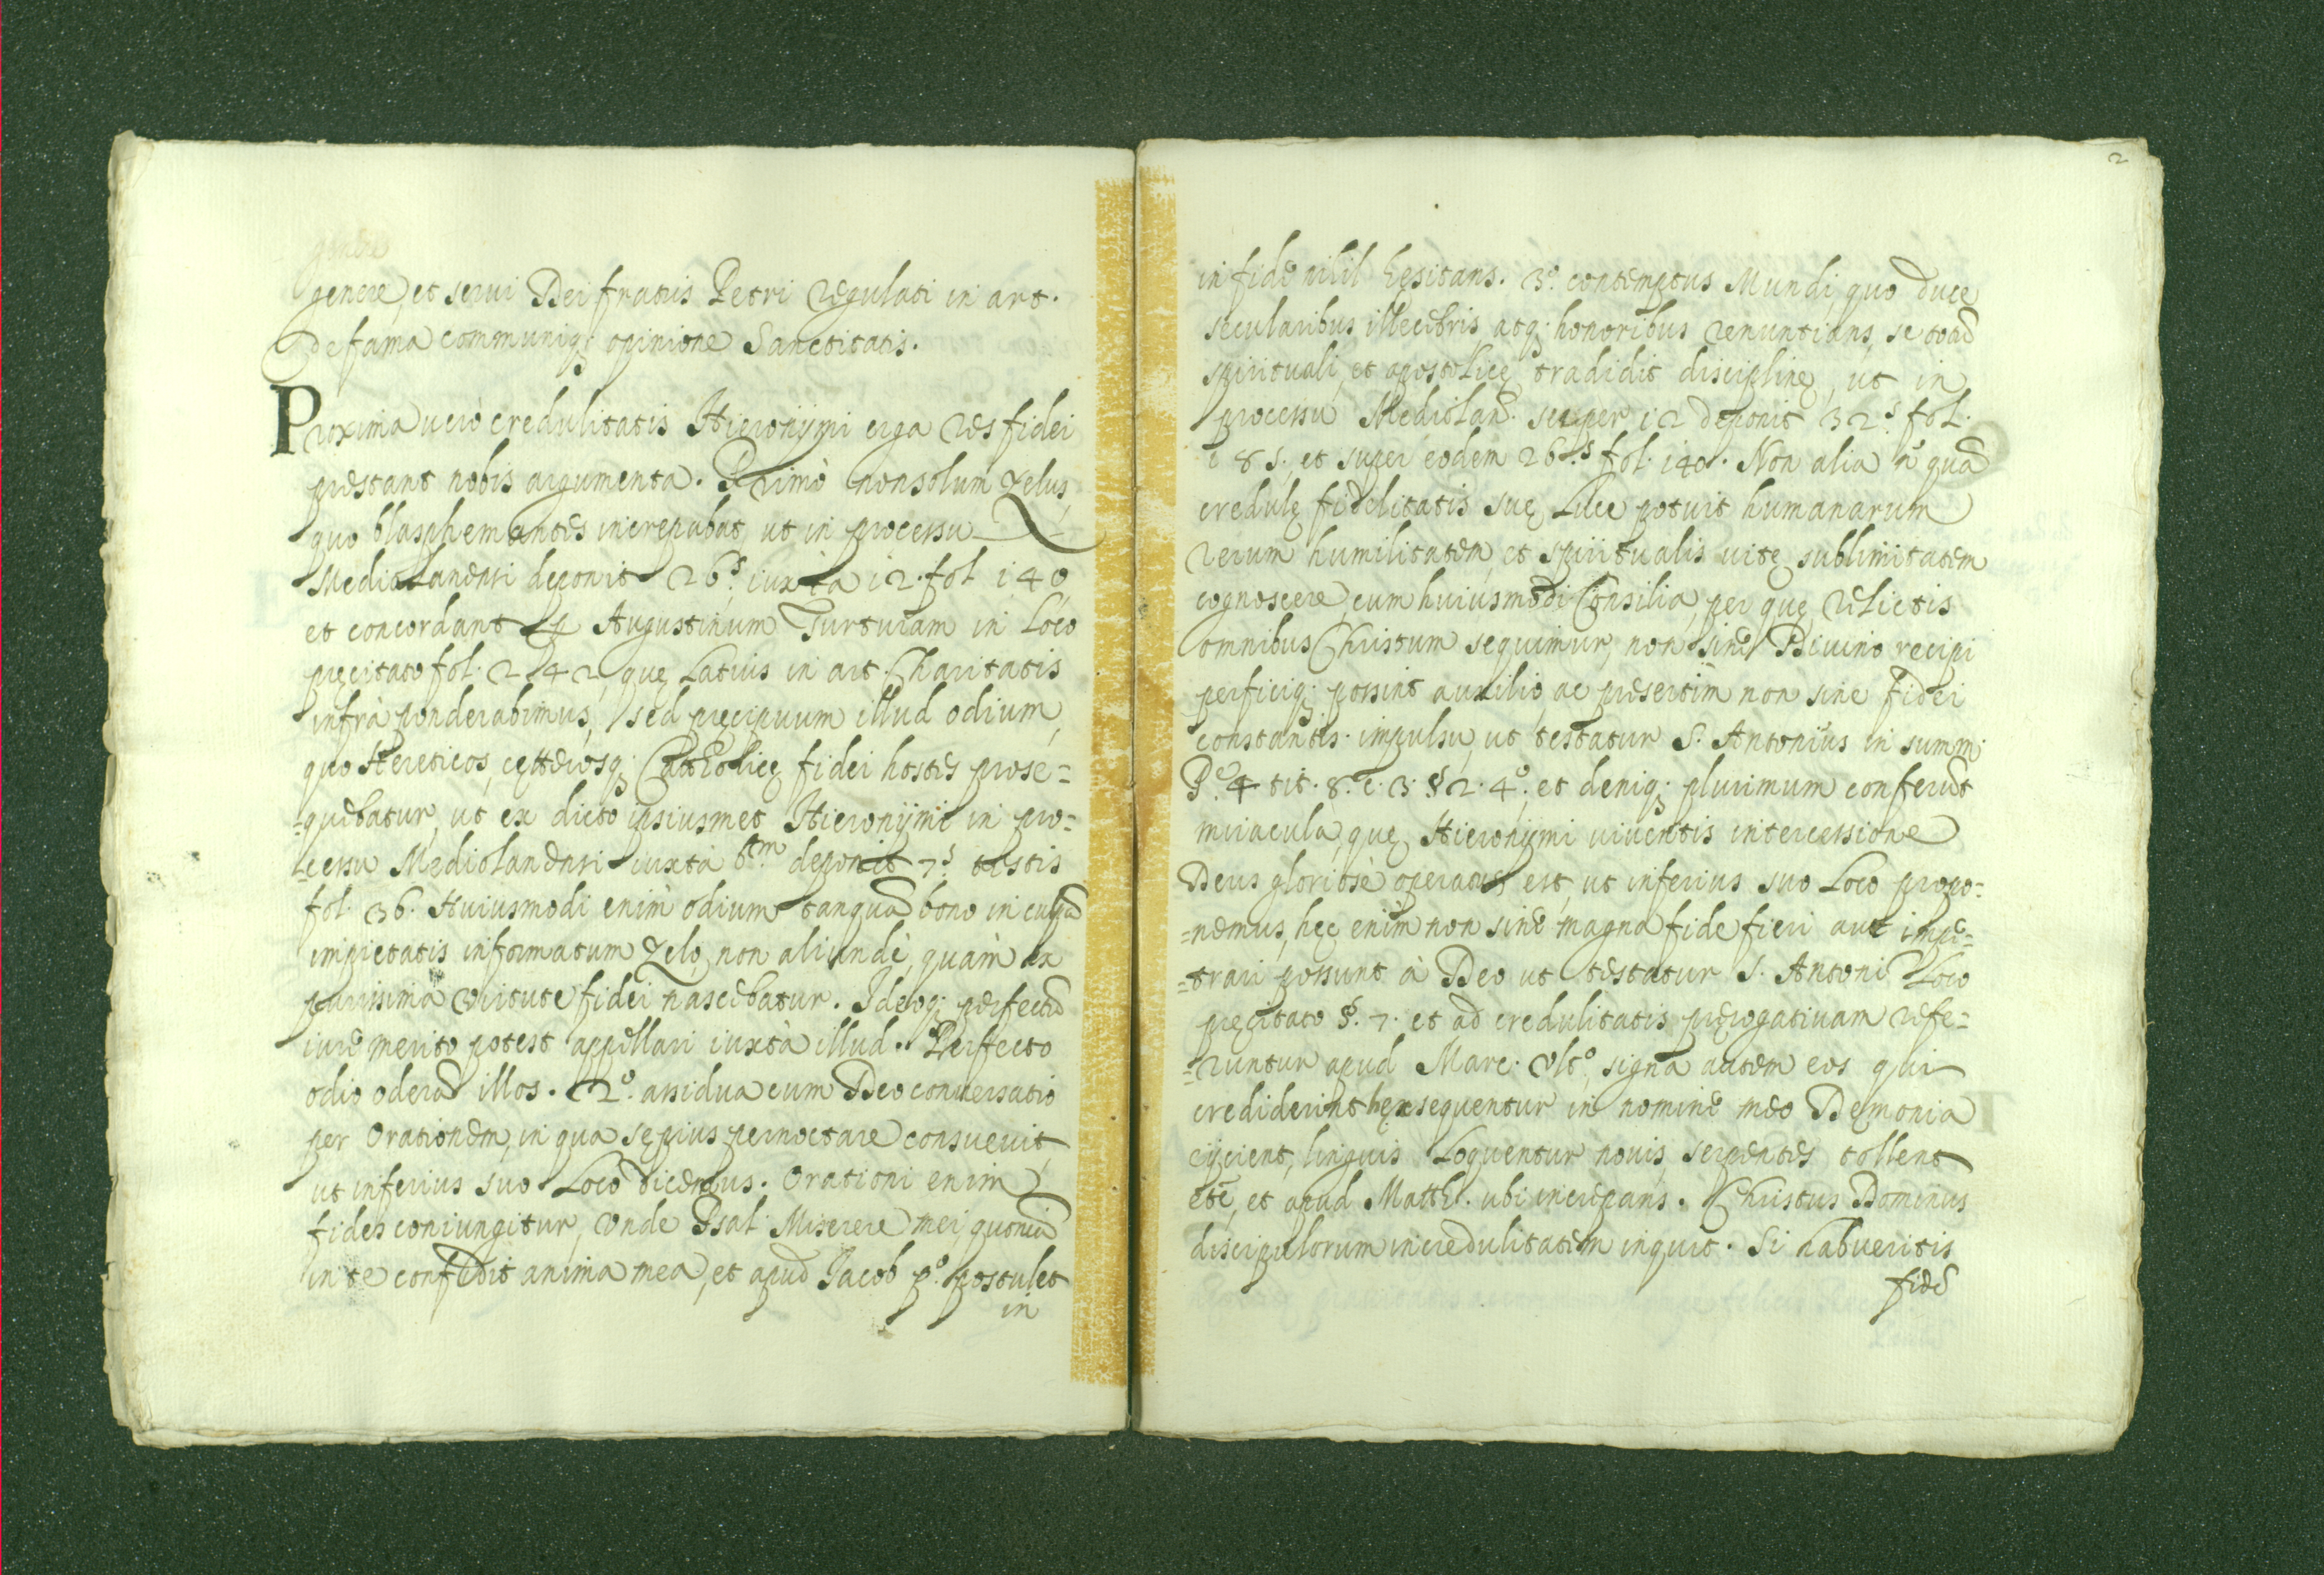 genere, et serui Dei fratris Petri Regulati in art.
de fama communiq; opinione Sanctitatis.
Proxima uerò credulitatis Hieronÿmi erga res fidei
prestant nobis argumenta. Primò non solum zelus,
quo blasphemantes increpabat, ut in processu
Mediolanensi deponit 26.s iuxta 12. fol. 140,
et concordant Augustinum Turturam in loco
pręcitato fol. 242, quę latius in art. Charitatis
infrà ponderabimus, sed pręcipuum illud odium,
quo Hereticos, cęterosq; Catholicę fidei hostes prose=
=quebatur, ut ex dicto ipsiusmet Hieronÿmi in pro=
=cessu Mediolanensi iuxtà 6.tm deponit 7.s testis
fol. 36. Huiusmodi enim odium tanquã bono in culpã
impietatis informatum zelo, non aliundè, quàm ex
purissima virtute fidei nascebatur. Ideoq; perfectũ
iure merito potest appellari iuxtà illud. Perfecto
odio oderã illos. 2.o assidua cum Deo conuersatio
per Orationem, in qua sępius pernoctare consueuit,
ut inferius suo loco dicemus. Orationi enim
fides coniungitur, vnde Psal. Miserere mei, quoniã
in te confidit anima mea, et apud Jacob p.o postulet
in
2
in fide nihil hęsitans. 3.o contemptus Mundi, quo duce
secularibus illecebris, atq; honoribus renuntians, se totũ
spirituali, et apostolicę tradidit disciplinę, ut in
processu Mediolan. super 12 deponit 32.s fol.
185. et super eodem 26.s fol. 140. Non alia n. quã
credulę fidelitatis suę luce potuit humanarum
rerum humilitatem, et spiritualis uitę sublimitatem
cognoscere, cum huiusmodi Consilia, per quę relictis
omnibus Christum sequimur, non sine Diuino recipi
perficiq; possint auxilio, ac presertim non sine fidei
constantis impulsu, ut testatur S. Antonius in summ.
P.e 4 tit. 8. c. 3 § 2. 4.o, et deniq; plurimum conferũt
miracula, quę Hieronÿmi uiuentis intercessione
Deus gloriosè operatus est, ut inferius suo loco propo=
=nemus, hęc enim non sine magna fide fieri aut impe=
=trari possunt à Deo ut testatur S. Antoni loco
pręcitato §. 7. et ad credulitatis pręrogatiuam refe=
=runtur apud Marc. vlt.o, signa autem eos qui
crediderint hęc sequentur in nomine meo Demonia
eijcient, linguis loquentur nouis, serpentes tollent
etc, et apud Matth. ubi increpans. Christus Dominus
discipulorum incredulitatem inquit. Si habueritis
fidẽ